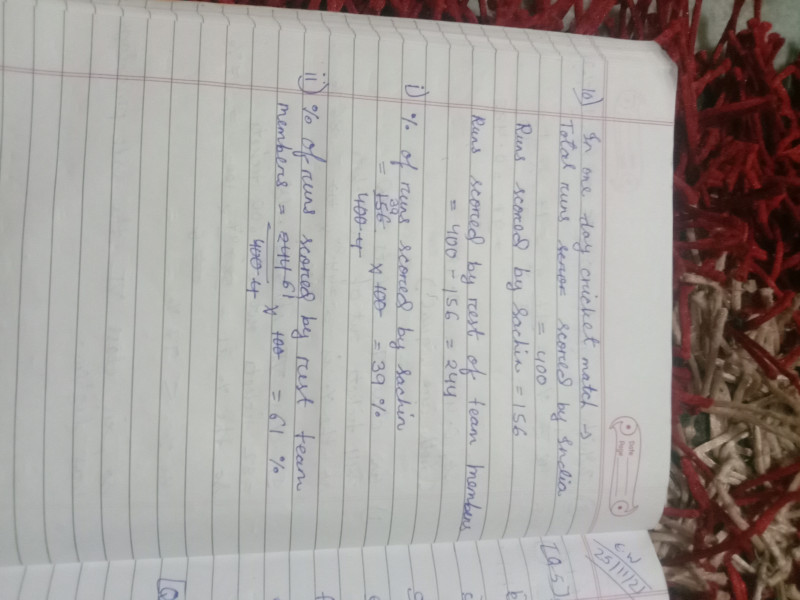 Date
Page
10) In one day cricket match →
Total runs scored by India
= 400
Runs scored by Sachin = 156
Runs scored by rest of team members
= 400 - 156 = 244
i) % of runs scored by Sachin
39
= 156 × 100 = 39 %
400 4
ii) % of runs scored by rest team
members = 244 61 × 100 = 61 %
400 4
C.W
25/11/2
[Q5]